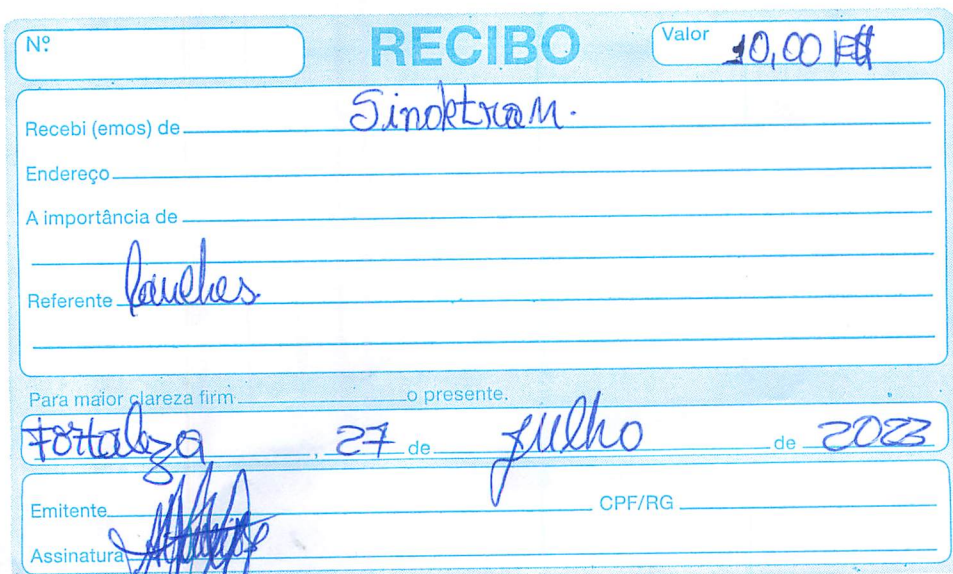 Nº
RECIBO
Valor 10,00 R$
Recebi (emos) de Sindetram.
Endereço
A importância de
Referente Lanches
Para maior clareza firm o presente.
Fortaleza, 27 de Julho de 2023
Emitente CPF/RG
Assinatura